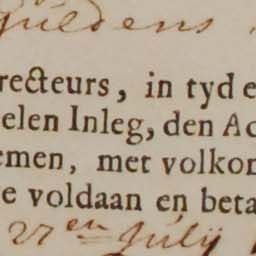 guldens
recteurs, in tyd e
elen Inleg, den Ac
emen, met volkor
e voldaan en beta
27en July